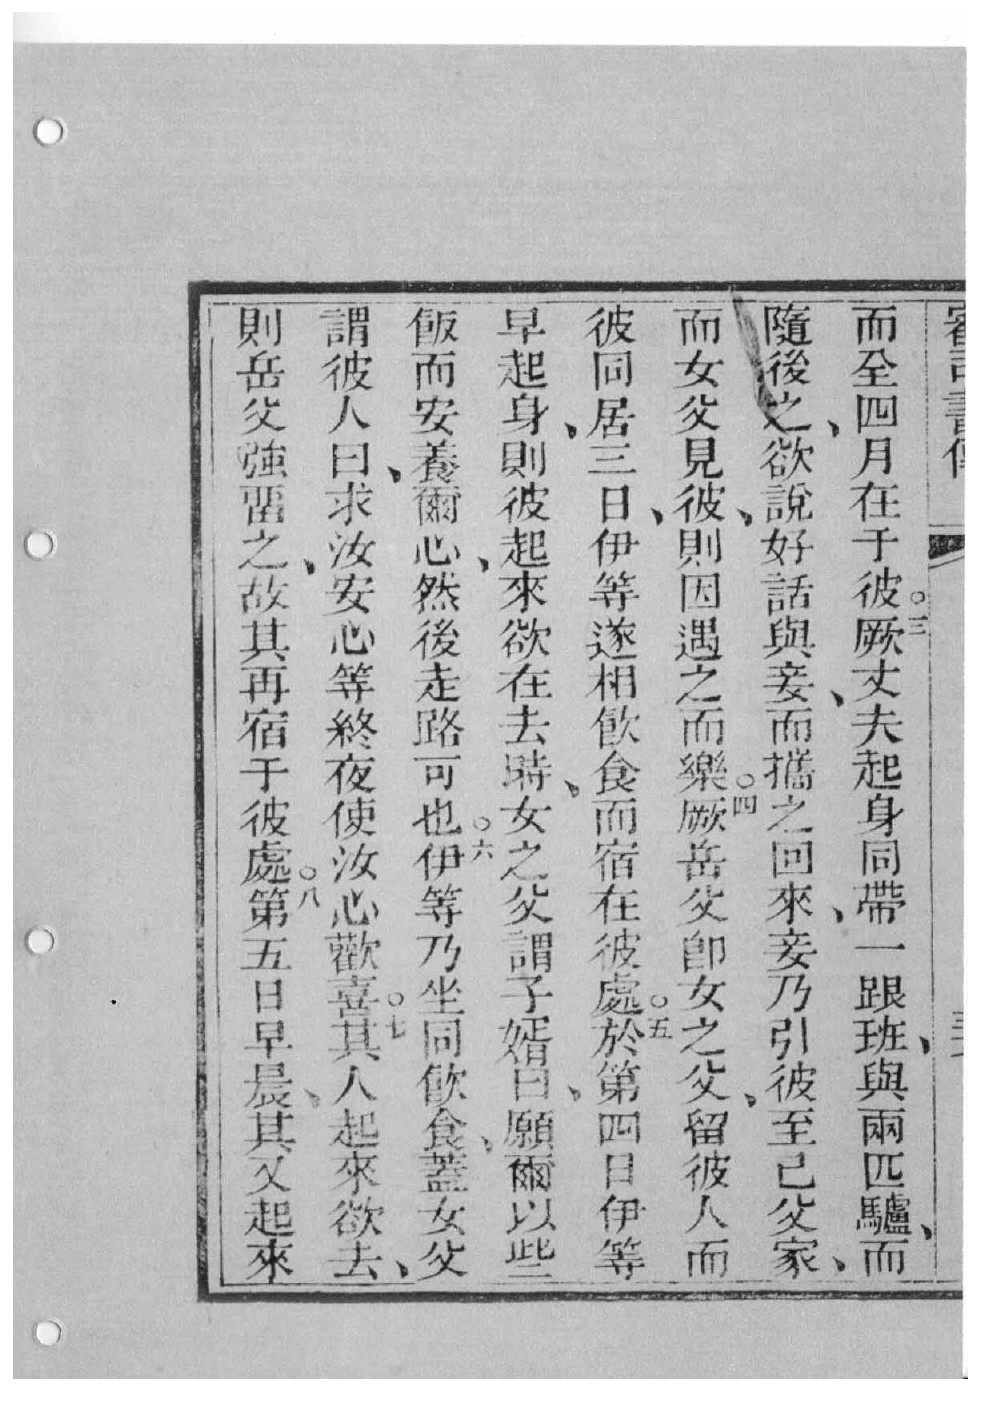 審司書傳
而全四月在于彼○三厥丈夫起身同帶一跟班、與兩匹驢、而
隨後之、欲說好話與妾、而攜之回來、妾乃引彼至己父家、
而女父見彼、則因遇之而樂○四厥岳父卽女之父、留彼人而
彼同居三日、伊等遂相飲食而宿在彼處○五於第四日伊等
早起身、則彼起來欲在去時、女之父謂子婿曰、願爾以些
飯而安養爾心、然後走路可也○六伊等乃坐同飲食、蓋女父
謂彼人曰、求汝安心等終夜使汝心歡喜○七其人起來欲去、
則岳父強畱之、故其再宿于彼處○八第五日早晨、其又起來